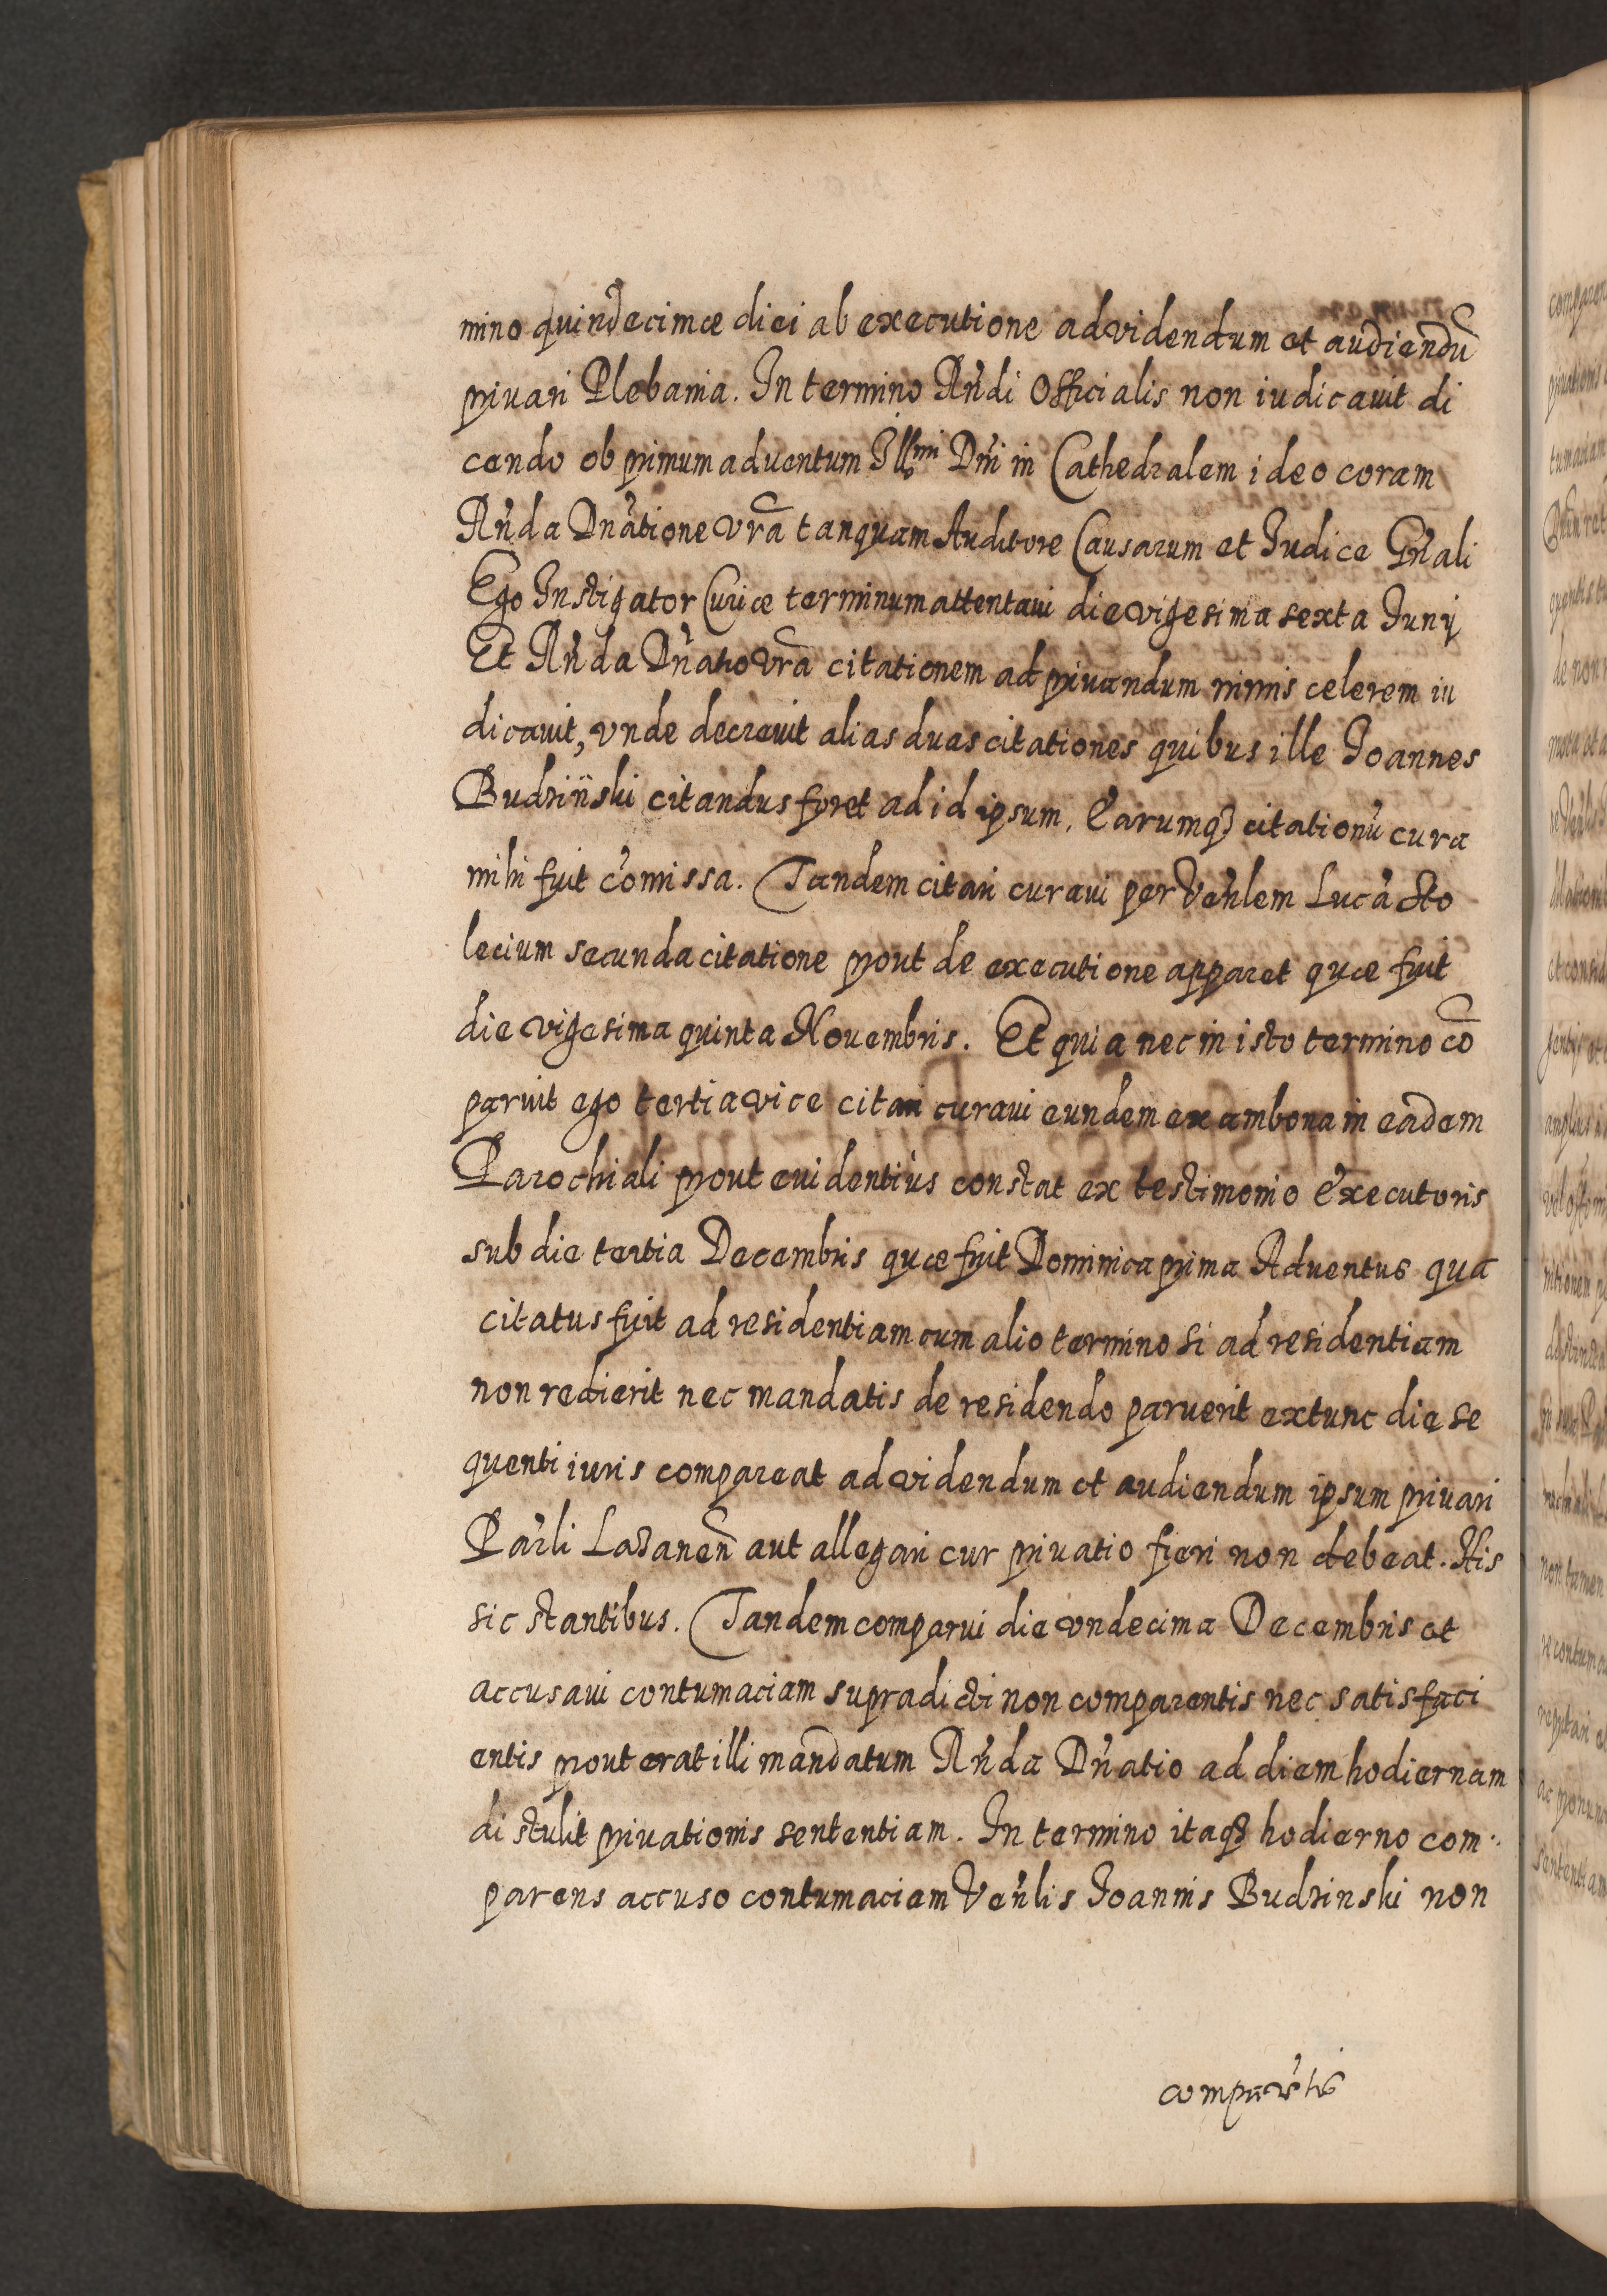 mino quindecimæ diei ab executione ad videndum et audiendū
priuari Plebania. In termino Rńdi Officialis non iudicauit di
cendo ob primum aduentum Illmi Dńi in Cathedralem ideo coram
Rńda Dńatione Vrā tanquam Auditore Causarum et Iudice Gńali
Ego Instigator Curiæ terminum attentaui die vigesima sexta Iunij
Et Rńda Dńatio Vrā citationem ad priuandum nimis celerem iu
dicauit, vnde decreuit alias duas citationes quibus ille Ioannes
Budziński citandus foret ad id ipsum. Earumq3 citationū cura
mihi fuit cōmissa. Tandem citari curaui per Veńlem Lucā Sto
lecium secunda citatione prout de executione apparet quæ fuit
die vigesima quinta Nouembris. Et quia nec in isto termino cō
paruit ego tertia vice citari curaui eundem ex ambona in eadem
Parochiali prout euidentiùs constat ex testimonio Executoris
sub die tertia Decembris quæ fuit Dominica prima Aduentus qua
citatus fuit ad residentiam cum alio termino si ad residentiam
non redierit nec mandatis de residendo paruerit extunc die se
quenti iuris compareat ad videndum et audiendum ipsum priuari
Par̃li Lazaneñ aut allegari cur priuatio fieri non debeat. His
sic stantibus. Tandem comparui die vndecima Decembris et
accusaui contumaciam supradicti non comparentis nec satisfaci
entis prout erat illi mandatum Rńda Dńatio ad diem hodiernam
distulit priuationis sententiam. In termino itaq3 hodierno com
parens accuso contumaciam Veńlis Ioannis Budzinski non